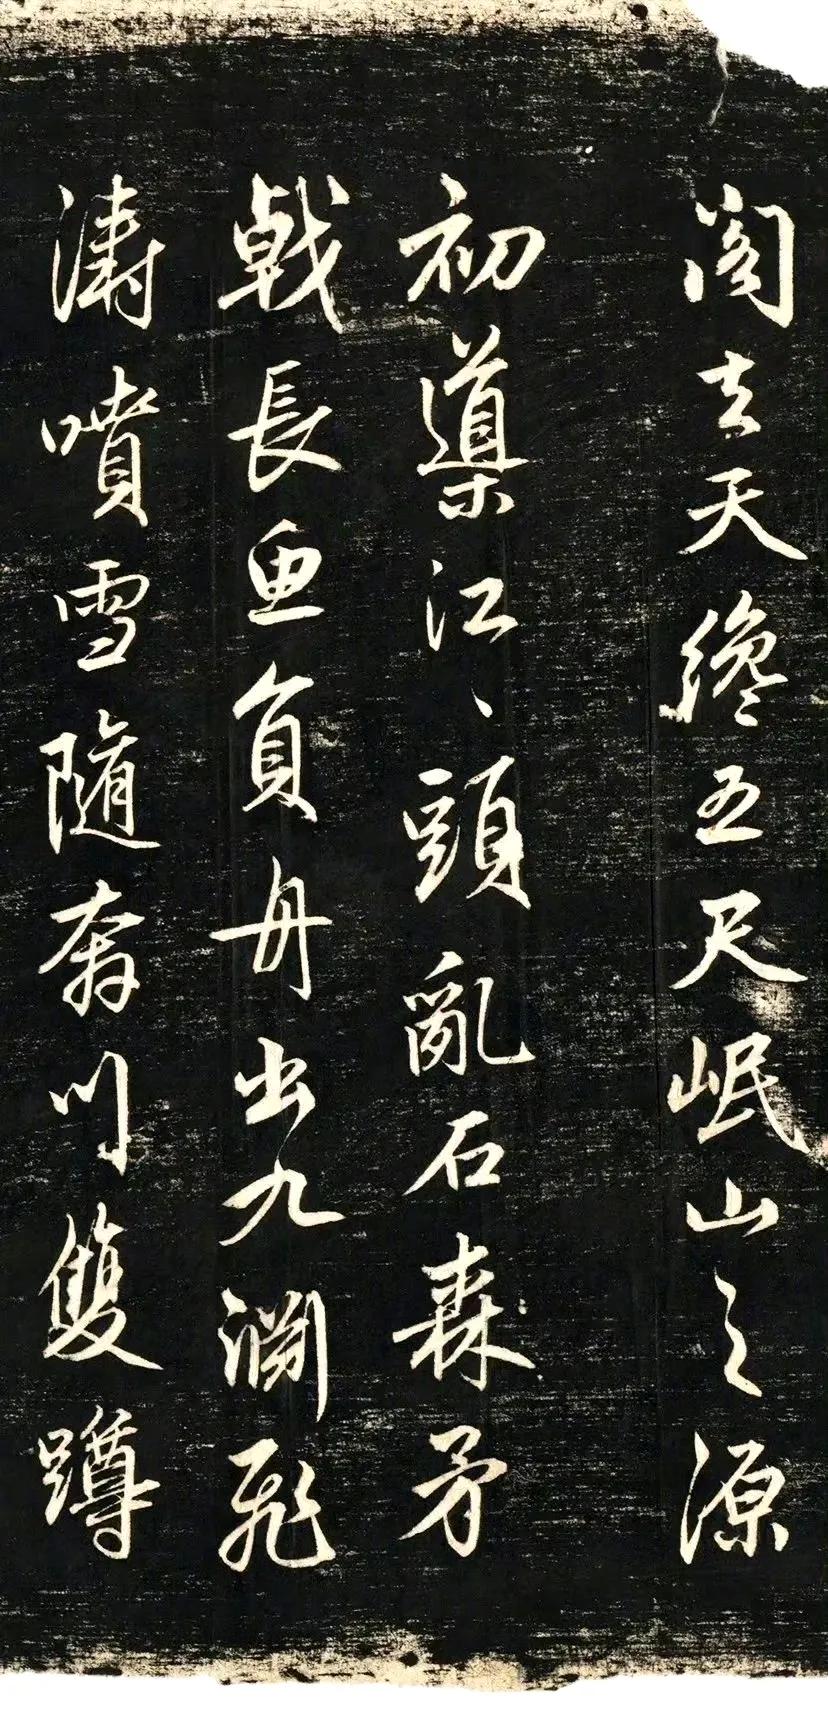 閣去天纔五尺岷山之源
初導江〻頭亂石森矛
戟長魚負舟出九淵飛
濤噴雪隨奔川雙蹲